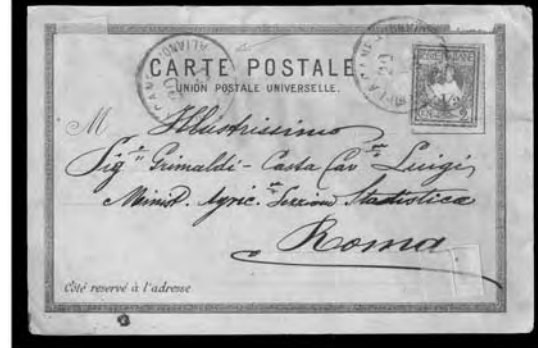 CARTE POSTALE
UNION POSTALE UNIVERSELLE.
M Illustrissimo
Sigr Grimaldi - Casta Cav Luigi
Minist. Agric. Sezione Statistica
Roma
Côté reservé à l'adresse